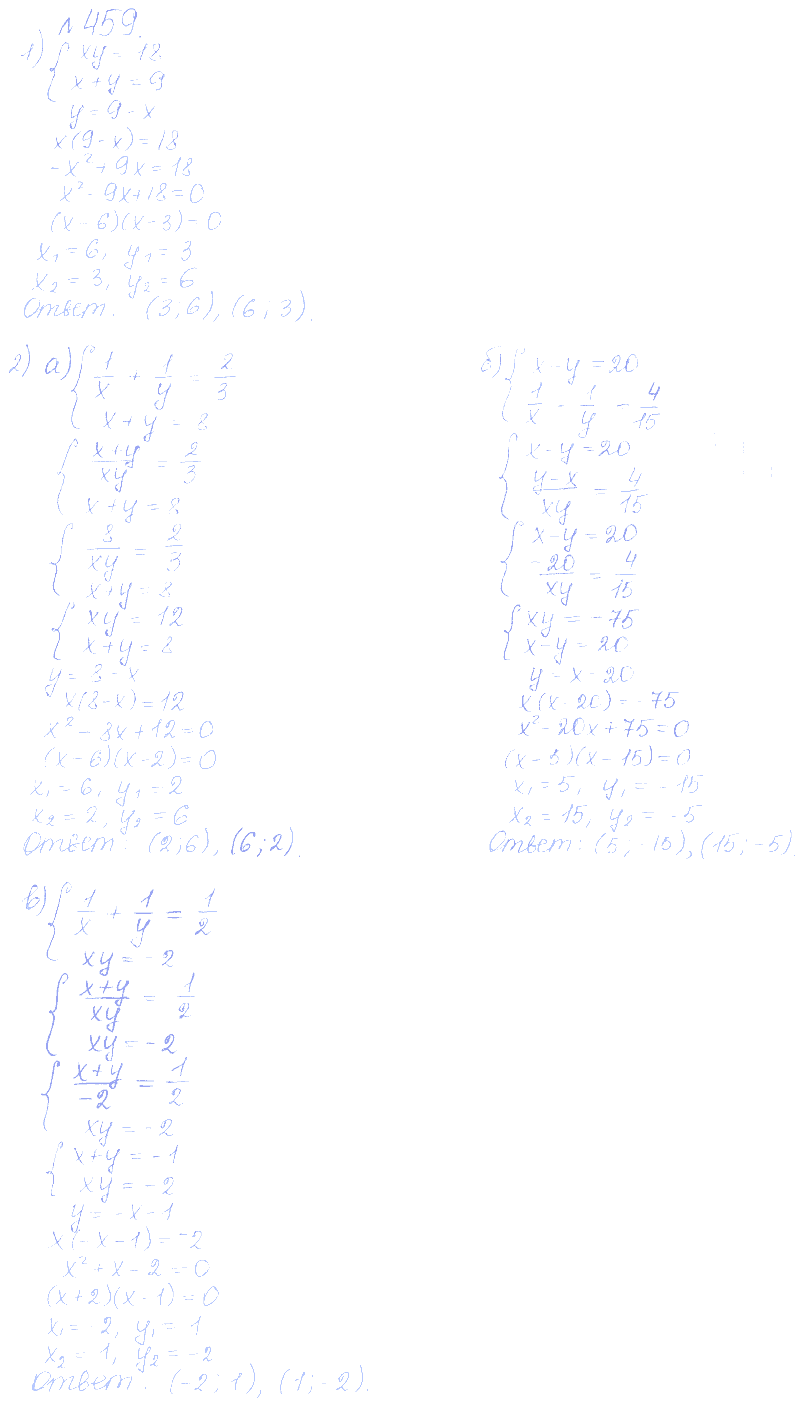 № 459.
1) { xy = 18
x + y = 9
y = 9 - x
x(9 - x) = 18
-x² + 9x = 18
x² - 9x + 18 = 0
(x - 6)(x - 3) = 0
x₁ = 6, y₁ = 3
x₂ = 3, y₂ = 6
Ответ: (3; 6), (6; 3).
2) а) { 1/x + 1/y = 2/3
x + y = 8
{ (x+y)/xy = 2/3
x + y = 8
{ 8/xy = 2/3
x + y = 8
{ xy = 12
x + y = 8
y = 8 - x
x(8 - x) = 12
x² - 8x + 12 = 0
(x - 6)(x - 2) = 0
x₁ = 6, y₁ = 2
x₂ = 2, y₂ = 6
Ответ: (2; 6), (6; 2).
б) { x - y = 20
1/x - 1/y = 4/15
{ x - y = 20
(y-x)/xy = 4/15
{ x - y = 20
-20/xy = 4/15
{ xy = -75
x - y = 20
y = x - 20
x(x - 20) = -75
x² - 20x + 75 = 0
(x - 5)(x - 15) = 0
x₁ = 5, y₁ = -15
x₂ = 15, y₂ = -5
Ответ: (5; -15), (15; -5).
в) { 1/x + 1/y = 1/2
xy = -2
{ (x+y)/xy = 1/2
xy = -2
{ (x+y)/-2 = 1/2
xy = -2
{ x + y = -1
xy = -2
y = -x - 1
x(-x - 1) = -2
x² + x - 2 = 0
(x + 2)(x - 1) = 0
x₁ = -2, y₁ = 1
x₂ = 1, y₂ = -2
Ответ: (-2; 1), (1; -2).